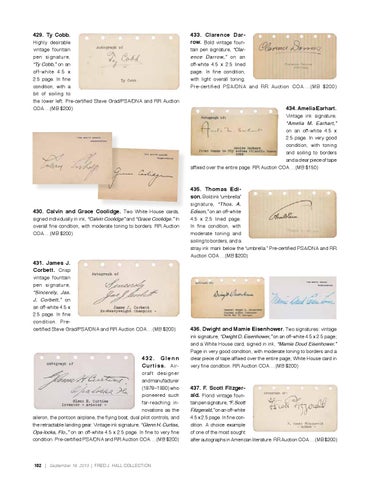 429. Ty Cobb.
Highly desirable
vintage fountain
pen signature,
“Ty Cobb,” on an
off-white 4.5 x
2.5 page. In fine
condition, with a
bit of soiling to
the lower left. Pre-certified Steve Grad/PSA/DNA and RR Auction
COA. . .(MB $200)
autograph of
Ty Cobb
Ty Cobb
THE WHITE HOUSE
WASHINGTON
Calvin Coolidge
THE WHITE HOUSE
WASHINGTON
Grace Coolidge
430. Calvin and Grace Coolidge. Two White House cards,
signed individually in ink, “Calvin Coolidge” and “Grace Coolidge.” In
overall fine condition, with moderate toning to borders. RR Auction
COA. . .(MB $200)
431. James J.
Corbett. Crisp
vintage fountain
pen signature,
“Sincerely, Jas.
J. Corbett,” on
an off-white 4.5 x
2.5 page. In fine
condition. Pre-
certified Steve Grad/PSA/DNA and RR Auction COA. . .(MB $200)
Autograph of
Sincerely
Jas. J. Corbett
James J. Corbett
Ex-Heavyweight Champion -
autograph of
Glenn H. Curtiss
Opa-locka, Fla.
Glenn H. Curtiss
Inventor - aviator -
432. Glenn
Curtiss. Air-
craft designer
and manufacturer
(1878–1930) who
pioneered such
far-reaching in-
novations as the
aileron, the pontoon airplane, the flying boat, dual pilot controls, and
the retractable landing gear. Vintage ink signature, “Glenn H. Curtiss,
Opa-locka, Fla.,” on an off-white 4.5 x 2.5 page. In fine to very fine
condition. Pre-certified PSA/DNA and RR Auction COA. . .(MB $200)
433. Clarence Dar-
row. Bold vintage foun-
tain pen signature, “Clar-
ence Darrow,” on an
off-white 4.5 x 2.5 lined
page. In fine condition,
with light overall toning.
Pre-certified PSA/DNA and RR Auction COA. . .(MB $200)
Clarence Darrow
434. Amelia Earhart.
Vintage ink signature,
“Amelia M. Earhart,”
on an off-white 4.5 x
2.5 page. In very good
condition, with toning
and soiling to borders
and a clear piece of tape
affixed over the entire page. RR Auction COA. . .(MB $150)
Autograph of:
Amelia M. Earhart
Amelia Earhart
435. Thomas Edi-
son. Bold ink ‘umbrella’
signature, “Thos. A.
Edison,” on an off-white
4.5 x 2.5 lined page.
In fine condition, with
moderate toning and
soiling to borders, and a
stray ink mark below the “umbrella.” Pre-certified PSA/DNA and RR
Auction COA. . .(MB $200)
Dwight D. Eisenhower
THE WHITE HOUSE
Mamie Doud Eisenhower
436. Dwight and Mamie Eisenhower. Two signatures: vintage
ink signature, “Dwight D. Eisenhower,” on an off-white 4.5 x 2.5 page;
and a White House card signed in ink, “Mamie Doud Eisenhower.”
Page in very good condition, with moderate toning to borders and a
clear piece of tape affixed over the entire page; White House card in
very fine condition. RR Auction COA. . .(MB $200)
437. F. Scott Fitzger-
ald. Florid vintage foun-
tain pen signature, “F. Scott
Fitzgerald,” on an off-white
4.5 x 2.5 page. In fine con-
dition. A choice example
of one of the most sought
after autographs in American literature. RR Auction COA. . .(MB $200)
autograph of:
F. Scott Fitzgerald
102 | September 18, 2013 | FRED J. HALL COLLECTION